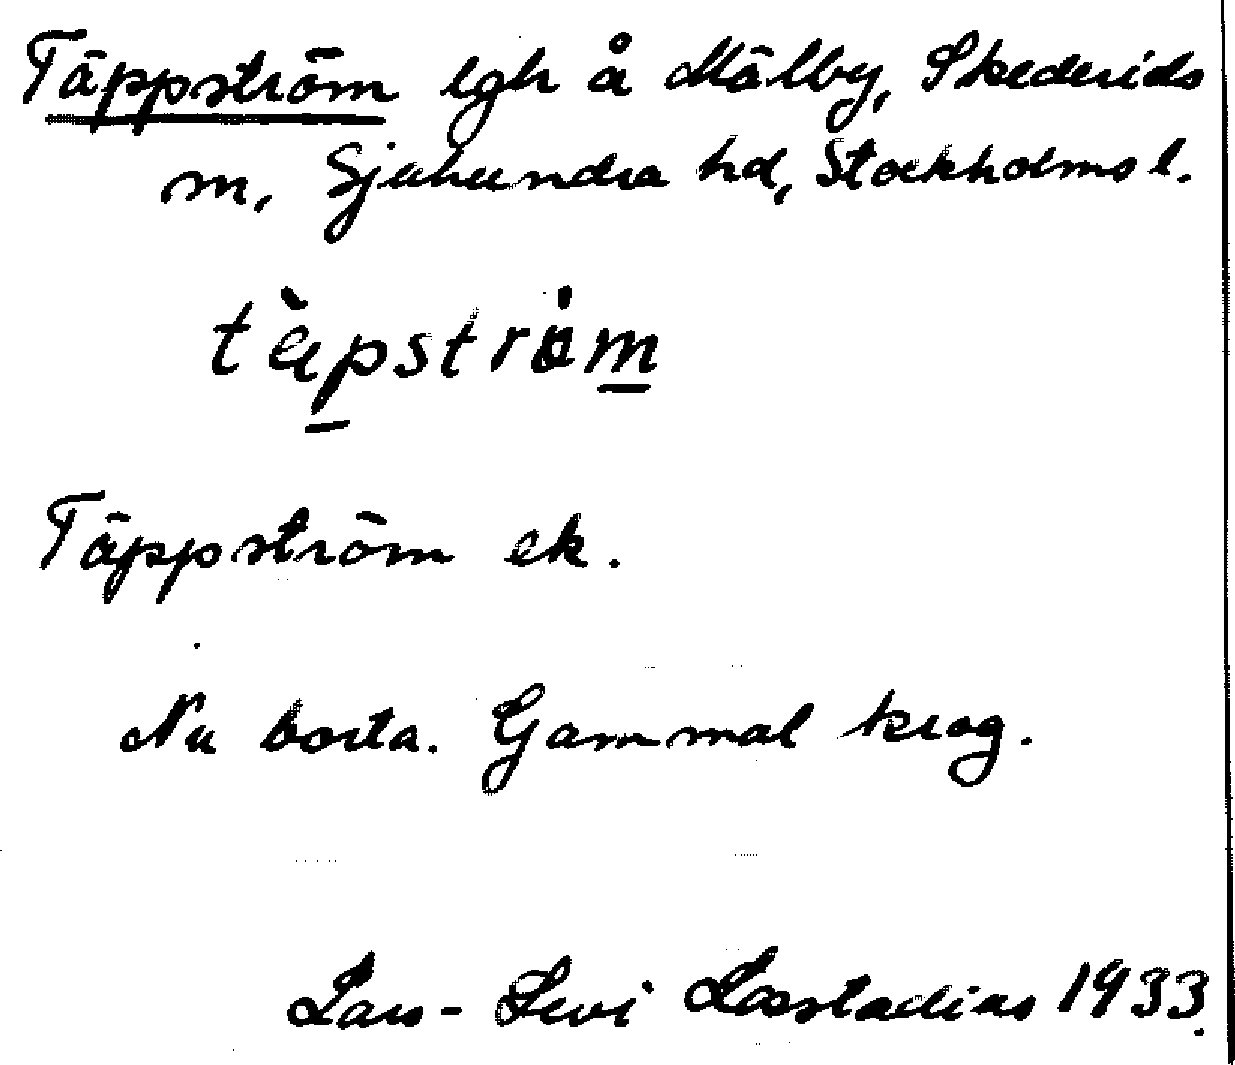 Täppström lgh å Målby, Skederids
m, Sjuhundra hd, Stockholms l.
tàpstrȯm
Täppström ek.
Nu borta. Gammal krog.
Lars-Levi Læstadius 1933.